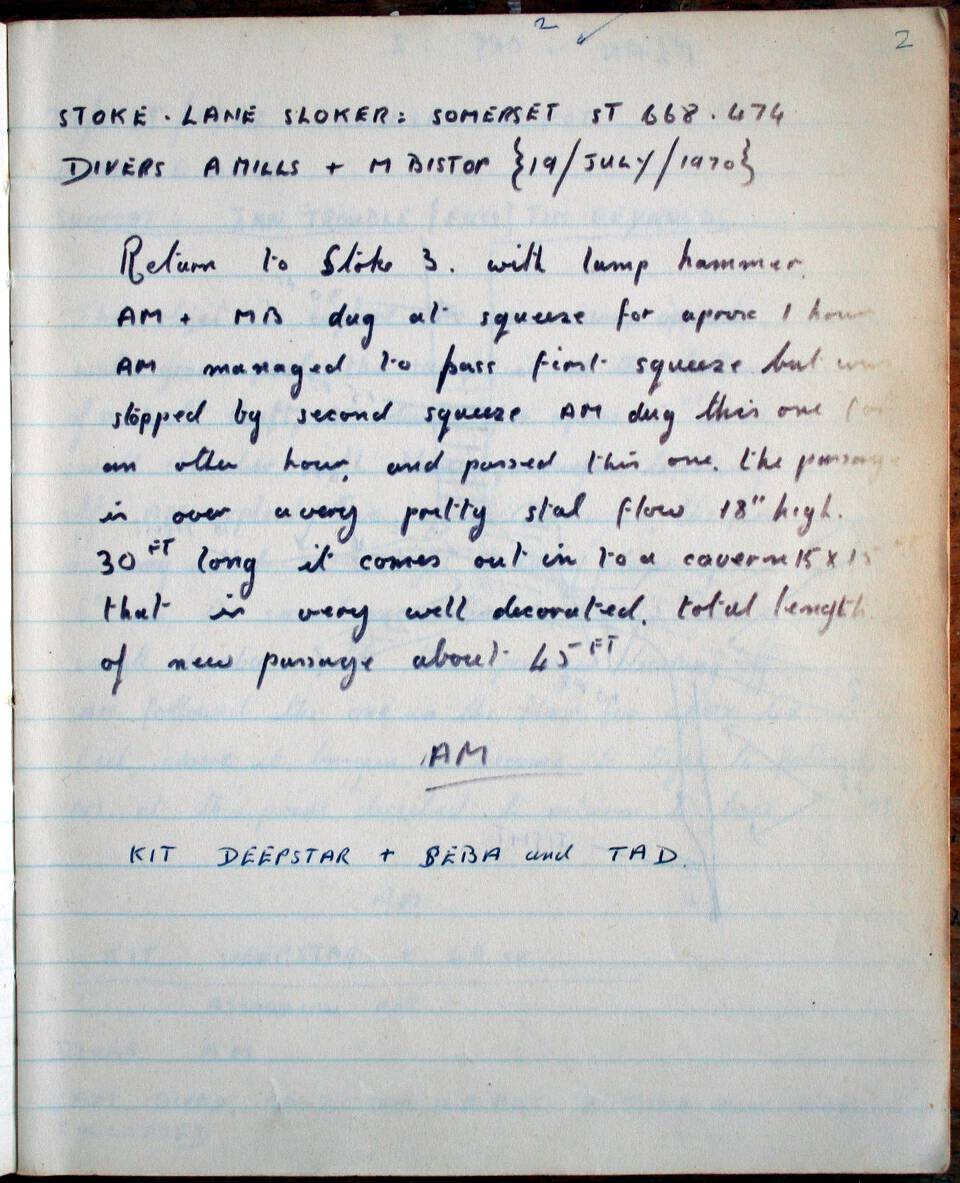 2 ✓ 2
STOKE. LANE SLOKER: SOMERSET ST 668.474
DIVERS A MILLS + M BISTOP {19/JULY/1970}
Return to Stoke 3. with lump hammer.
AM + MB dug at squeeze for aprox 1 hour
AM managed to pass first squeeze but was
stopped by second squeeze AM dug this one for
an other hour, and passed this one. the passage
is over a very pretty stal flow 18" high.
30 FT long it comes out in to a cavern 15 x 15 FT
that is very well decorated. total length
of new passage about 45 FT
AM
KIT DEEPSTAR + SEBA and TAD.